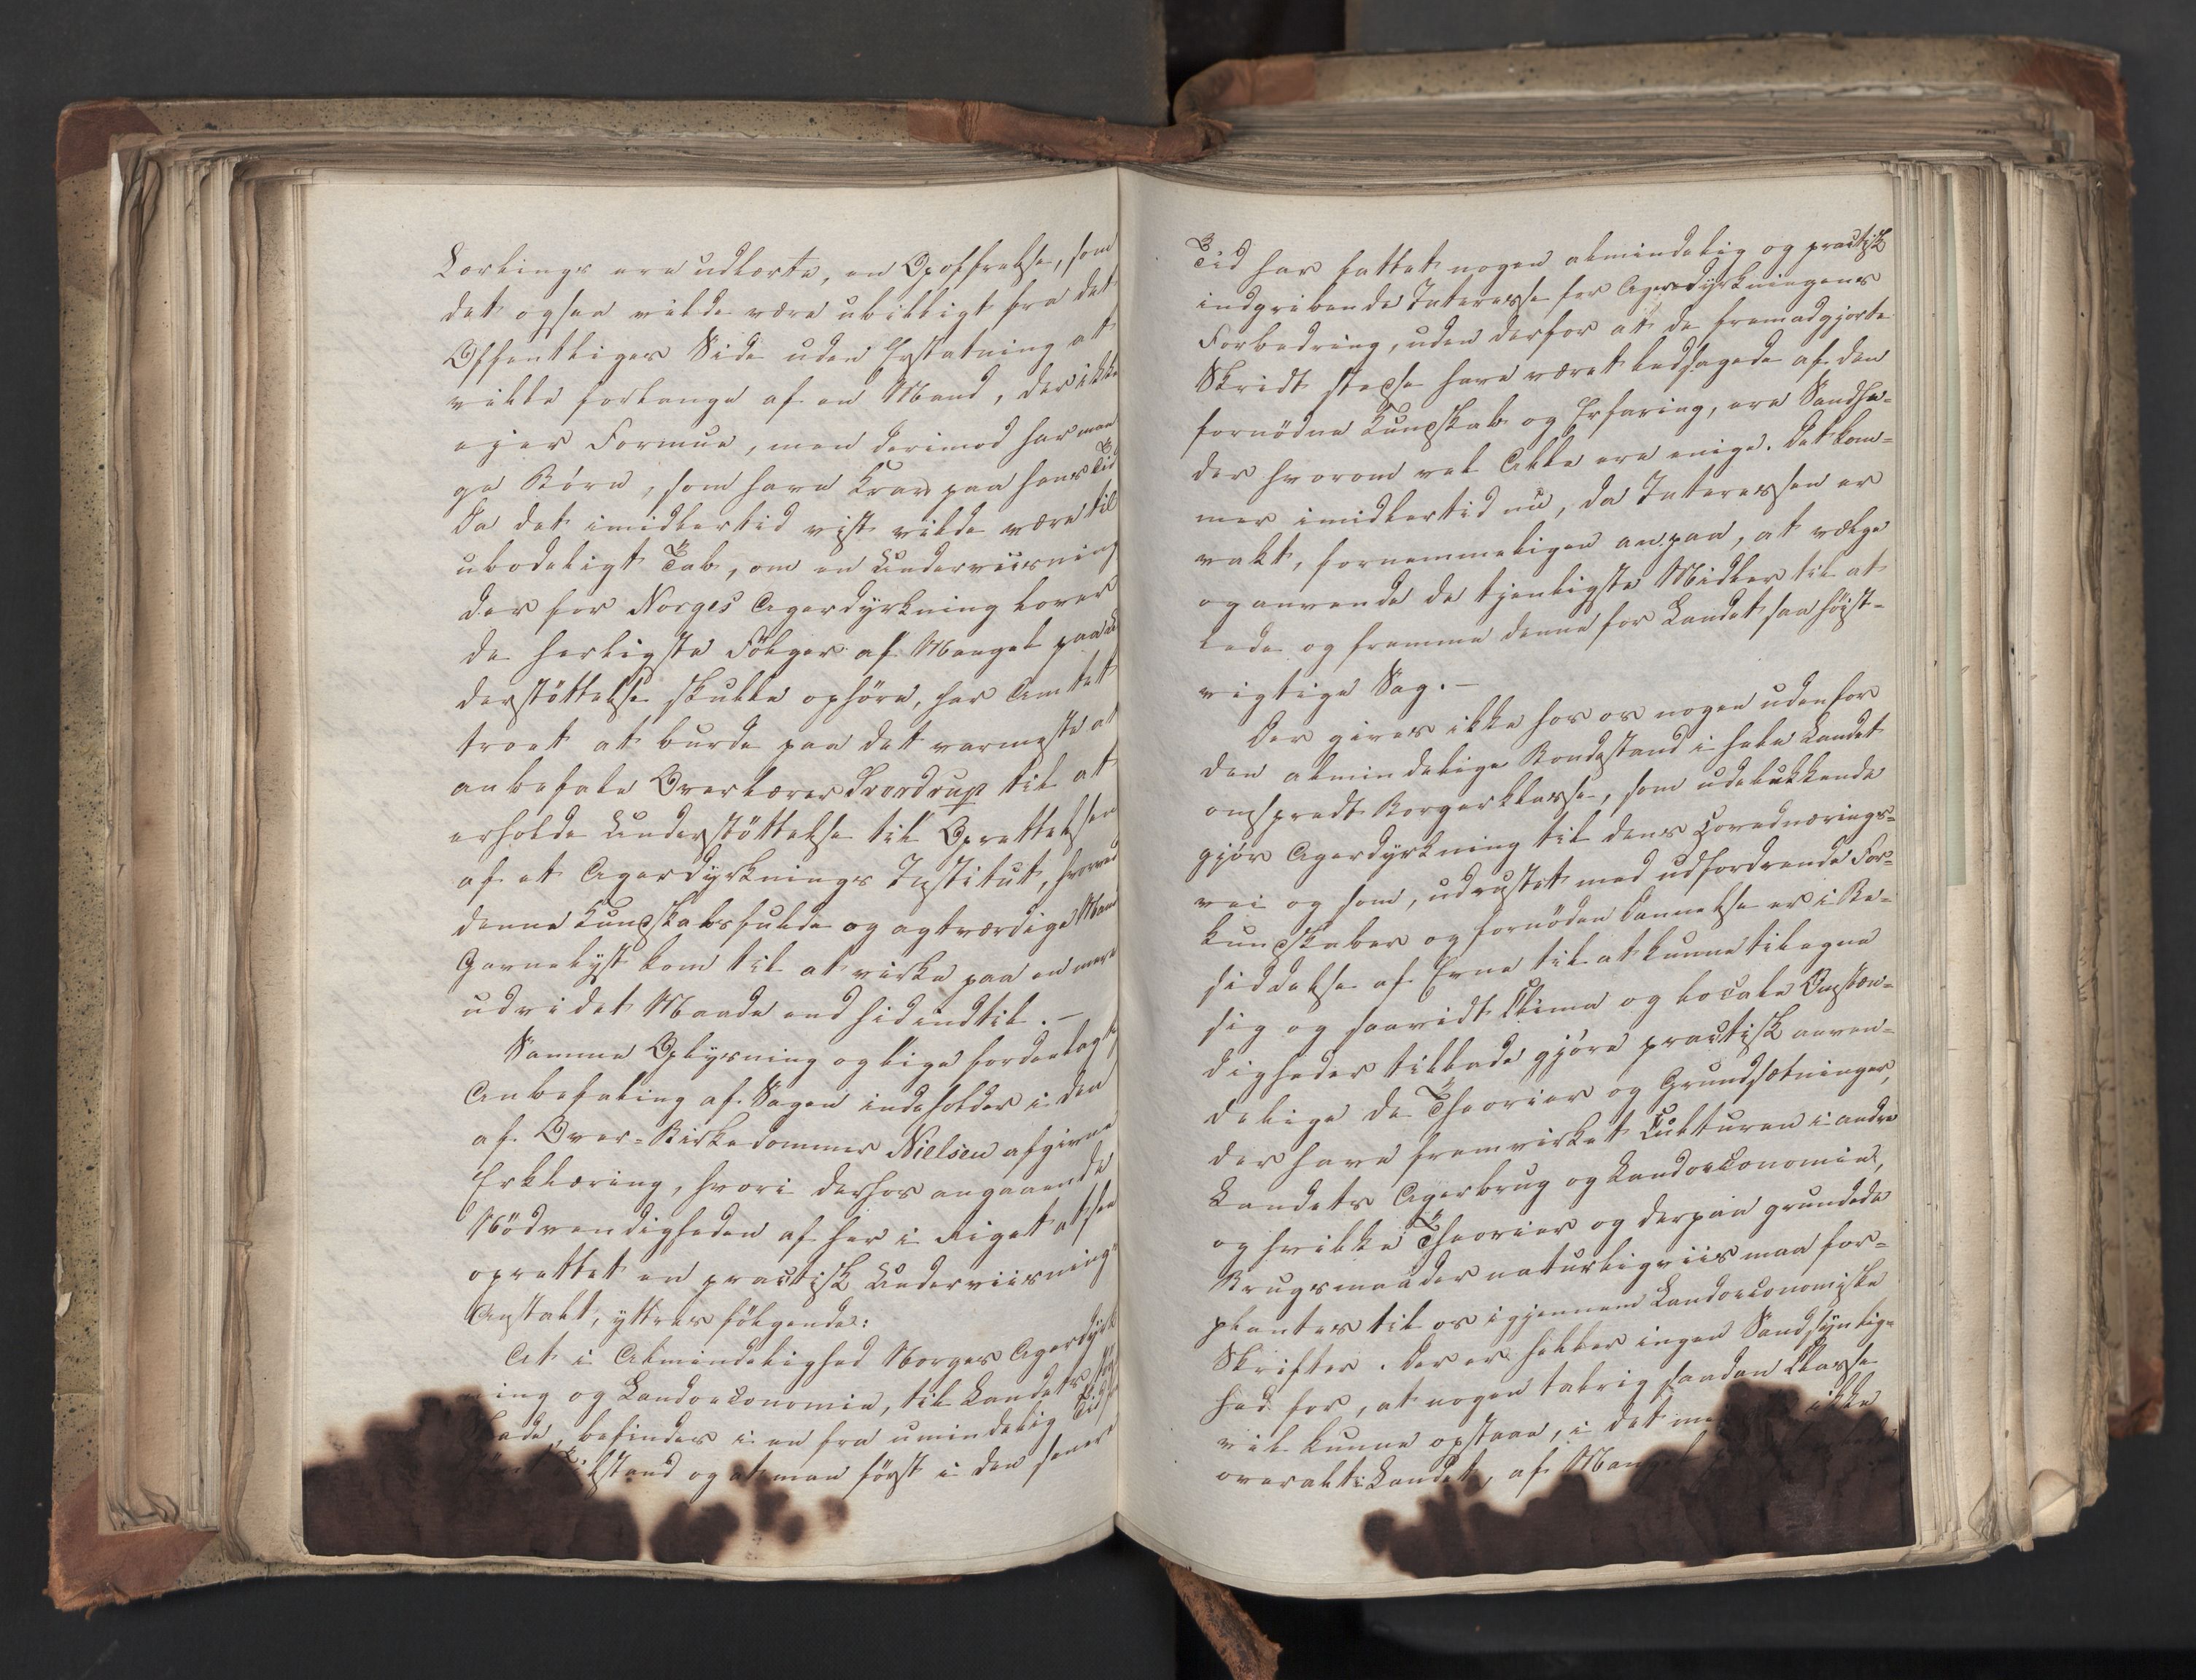 Lærlinge ere udlærte, en Opoffrelse, som
det ogsaa vilde være ubilligt fra det
Offentliges Side uden Erstatning at
ville forlange af en Mand, der ikke
ejer Formue, men derimod har man
ge Børn, som have Krav paa hans Tid
Da det imidlertid vist vilde være til
ubodeligt Tab, om en Underviisning
der for Norges Agerdyrkning lover
de herligste Følger af Mangel paa Un
derstøttelse skulle ophøre, har Amtet
troet at burde paa det varmeste at
anbefale Overlærer Sverdrup til at
erholde Understøttelse til Oprettelsen
af et Agerdyrknings Institut, hvorved
denne kundskabsfulde og agtværdige Mand
Gavnelyst kom til at virke paa en mere
udvidet Maade end hidindtil. –
Samme Oplysning og lige fordeelagtig
Anbefaling af Sagen indeholder i den
af Over-Birkedommer Nielsen afgivne
Erklæring, hvori derhos angaaende
Nødvendigheden af her i Riget at faa
oprettet en practisk Underviisnings
Anstalt, yttres følgende:
At i Almindelighed Norges Agerdyrk
ning og Landoeconomie, til Landets
Skade, befinder i en fra umindelig Tid
Tilstand og at man først i den senere
Tid har fattet nogen almindelig og practisk
indgribende Interesse for Agerdyrkningens
Forbedring, uden derfor at de fremadgjorte
Skridt stedse have været ledsagede af den
fornødne Kundskab og Erfaring, ere Sandhe-
der hvorom vel Alle ere enige. Det kom-
mer imidlertid nu, da Interessen er
vakt, fornemmeligen an paa, at vælge
og anvende de tjenligste Midler til at
lede og fremme denne for Landet saa høist-
vigtige Sag. –
Der gives ikke hos os nogen udenfor
den almindelige Bondestand i hele Landet
omspredt Borgerklasse, som udelukkende
gjør Agerdyrkning til dens Hovednærings-
vei og som, udrustet med udfordrende For-
kundskaber og fornøden Dannelse er i Be-
siddelse af Evne til at kunne tilegne
sig og saavidt Clima og locale Omstæn-
digheder tillade gjøre practisk anven-
delige de Theorier og Grundsætninger,
der have fremvirket Culturen i andre
Landets Agerbrug og Landoeconomie,
og hvilke Theorier og derpaa grundede
Brugsmaader naturligviis maa for-
plantes til os igjennem Landoeconomiske
Skrifter. Der er heller ingen Sandsynlig-
hed for, at nogen talrig saadan Classe
vil kunne opstaae, i det ikke
overalt i Landet, af Mangel